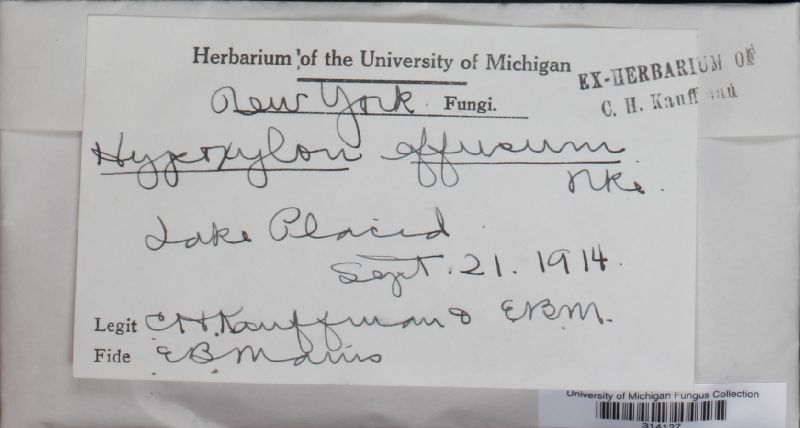 Herbarium of the University of Michigan
EX-HERBARIUM OF
C. H. Kauffman
New York Fungi.
Hypoxylon effusum
Nke.
Lake Placid
Sept. 21. 1914.
Legit C.H. Kauffman & EBM.
Fide E.B. Mains
University of Michigan Fungus Collection
314127